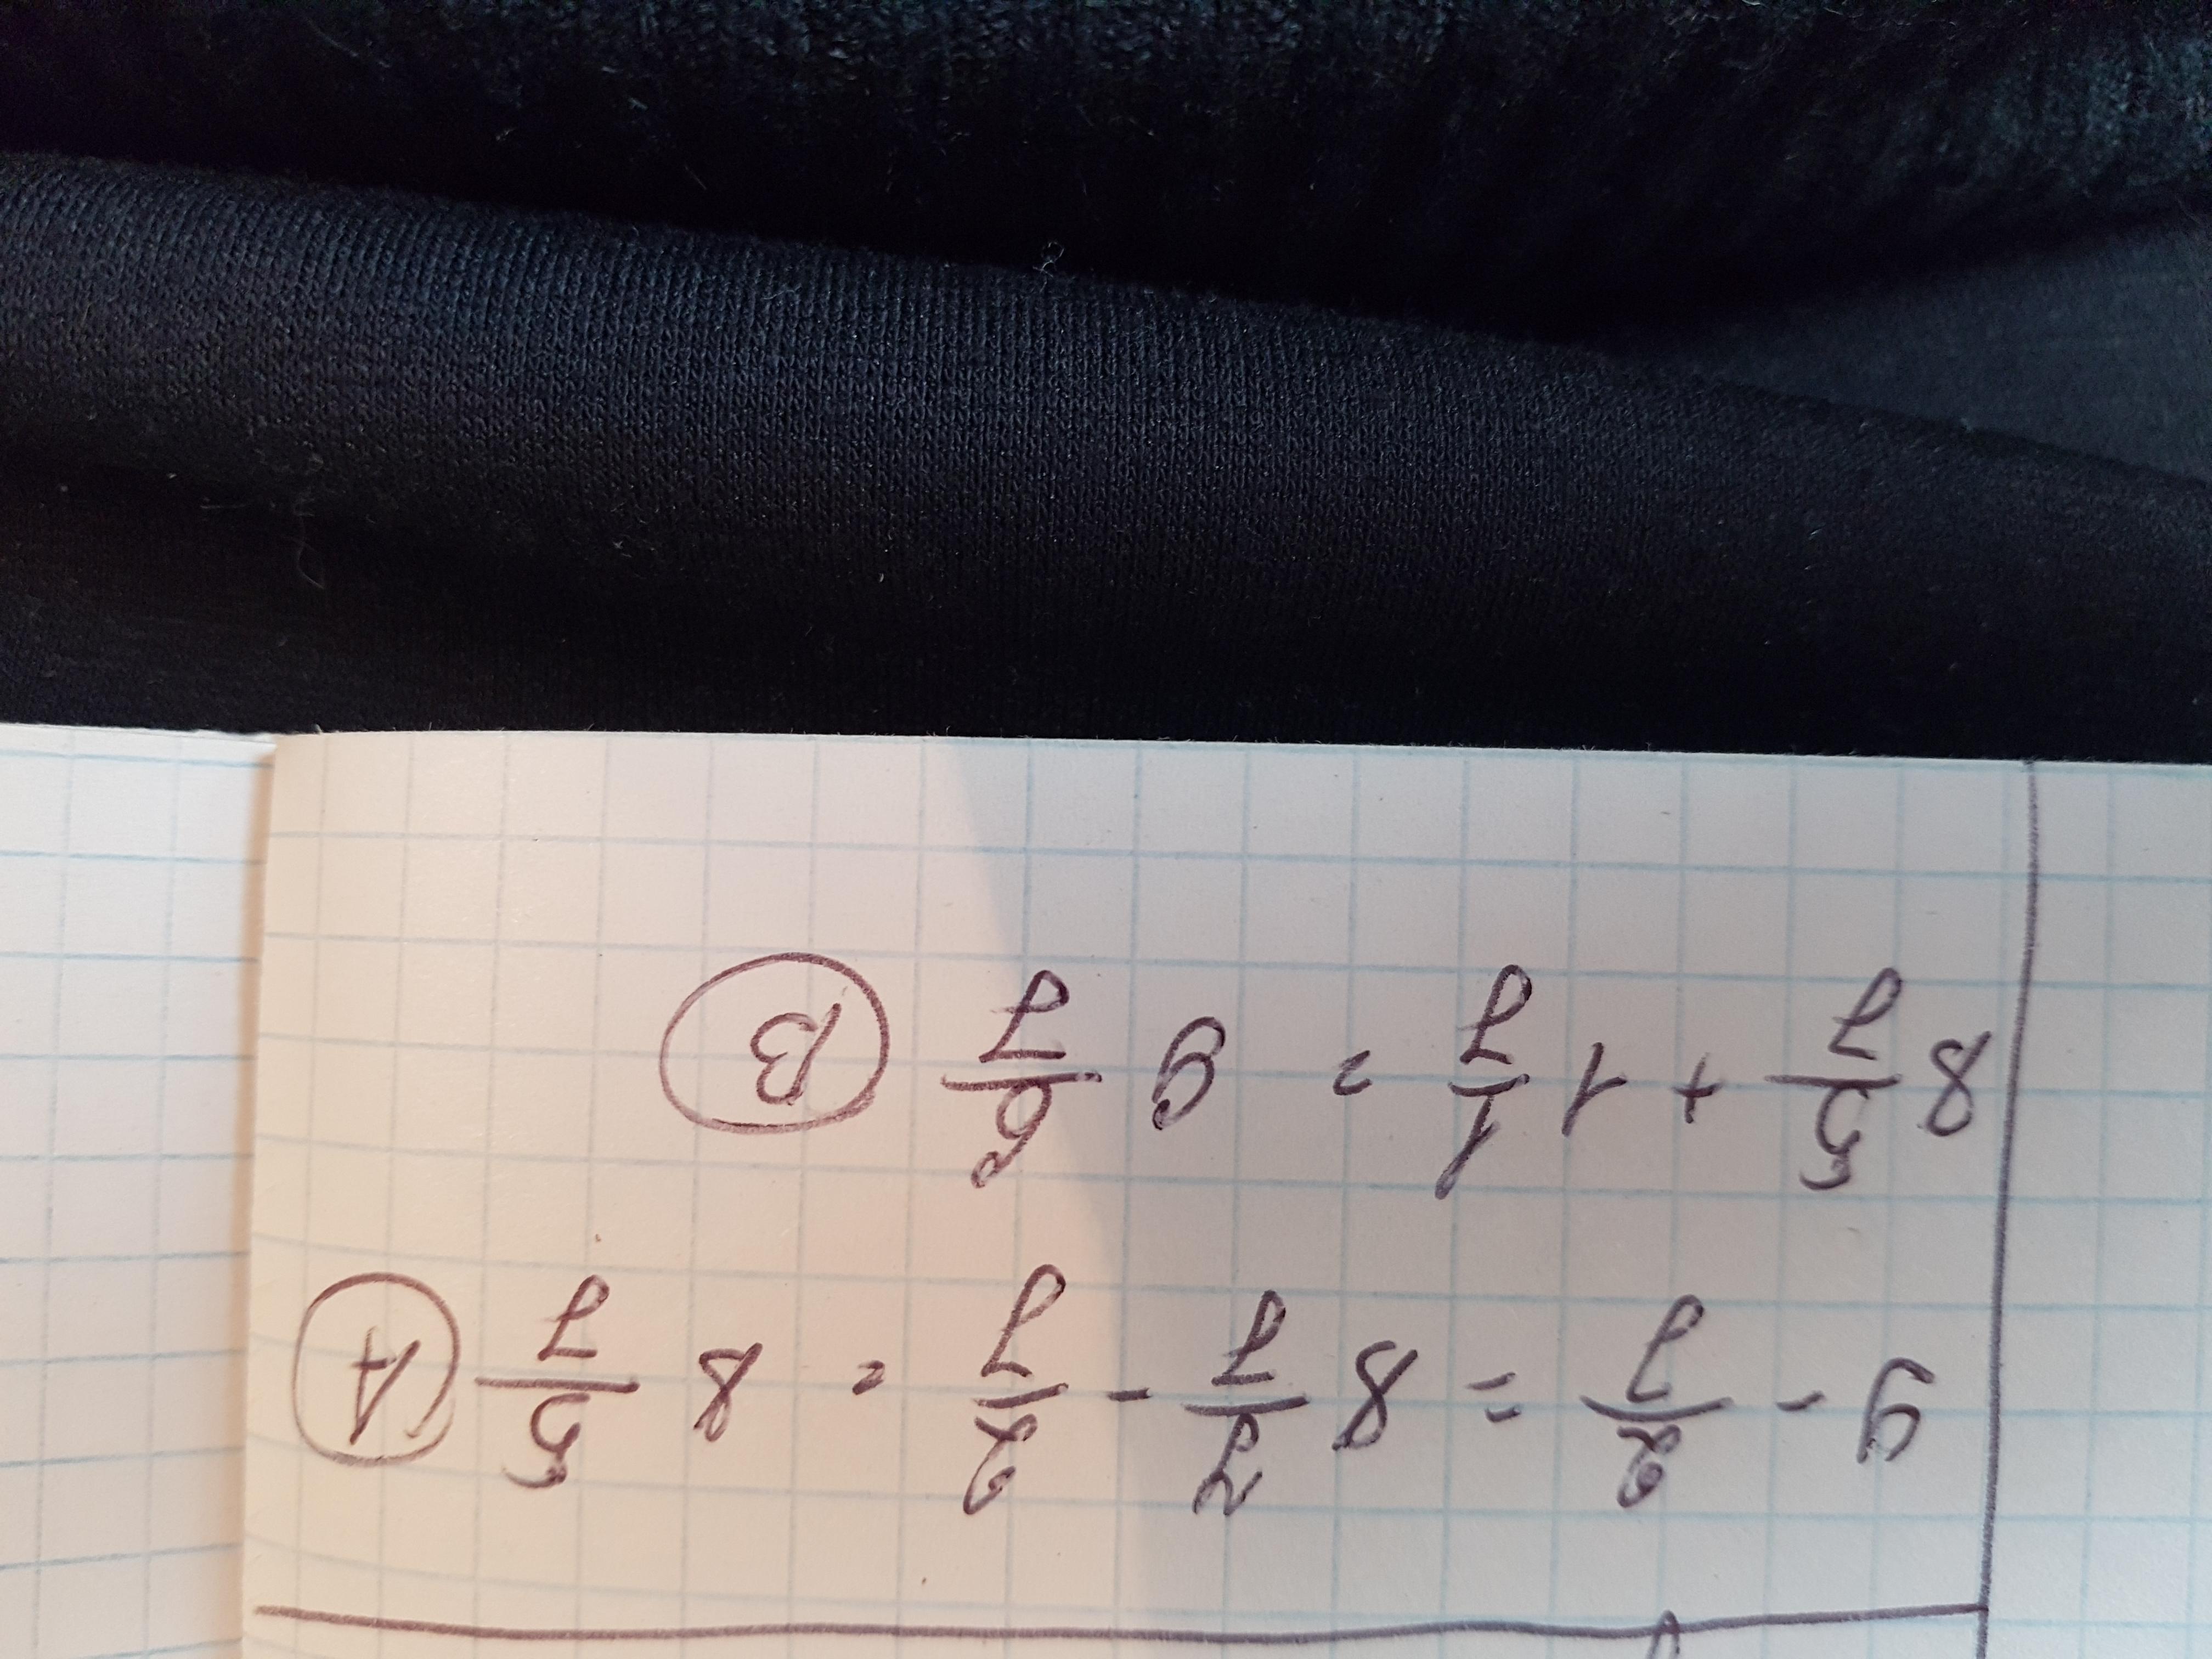 9 - 2/7 = 8 7/7 - 2/7 = 8 5/7 A
8 5/7 + 1 1/7 = 9 6/7 B